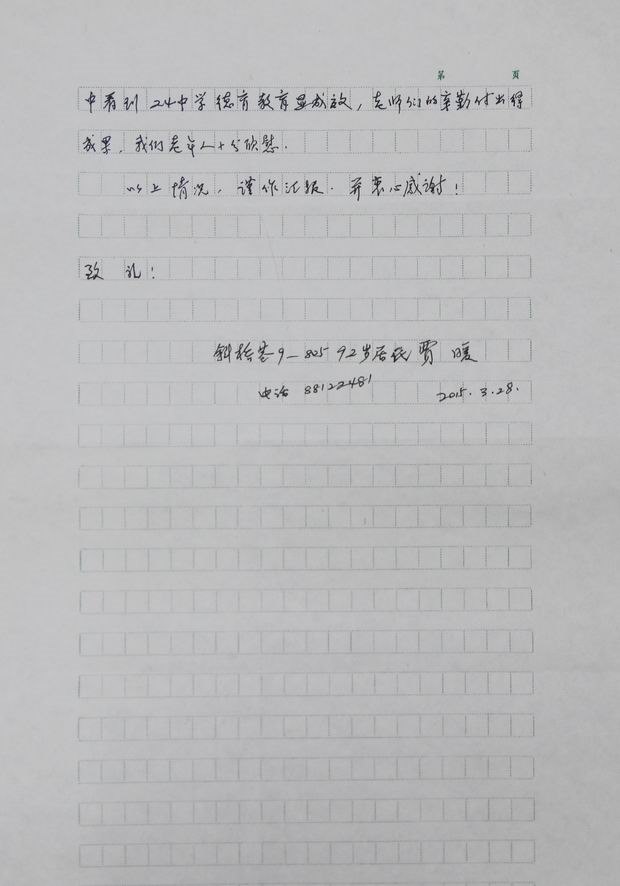 第 页
中看到24中学德育教育显成效，老师们的辛勤付出得
成果，我们老年人十分欣慰.
以上情况，谨作汇报.并衷心感谢！
致 礼！
斜桥巷9-805 92岁居民 贾 暖
电话 88122481 2015.3.28.